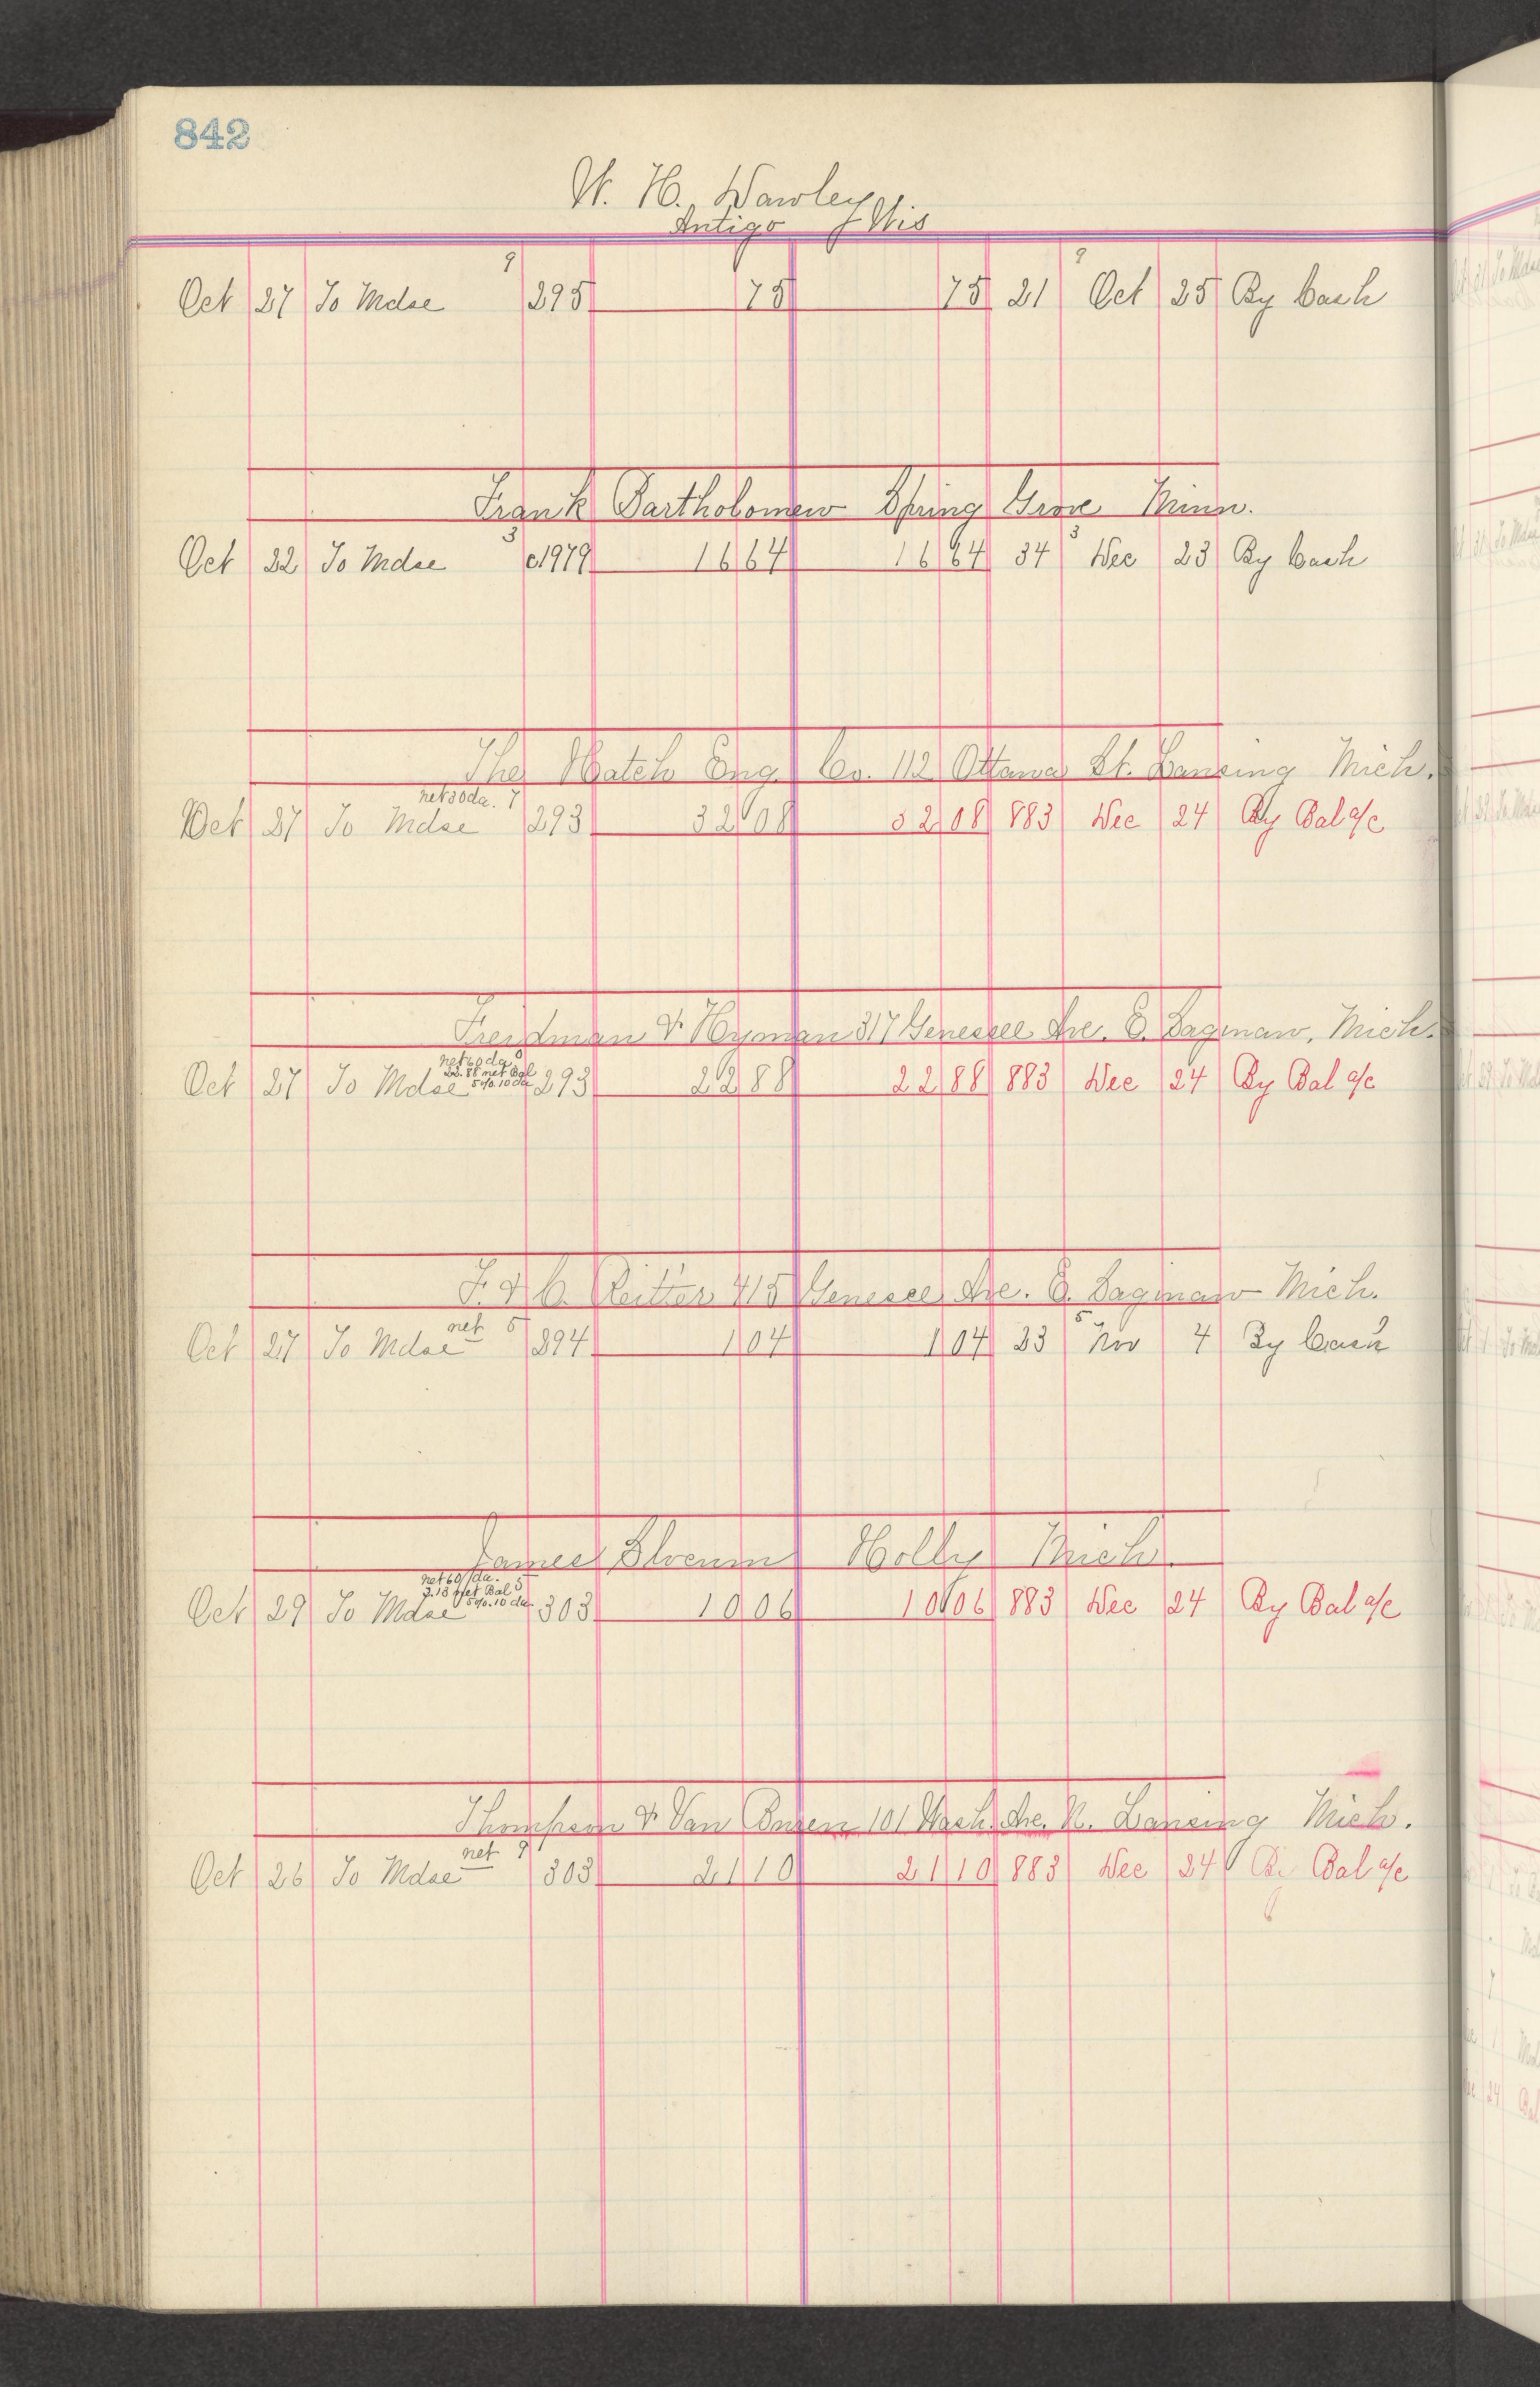 842
W. H. Dawley
Antigo Wis
9 9
Oct 27 To Mdse 295 75 75 21 Oct 25 By Cash
Frank Bartholomew Spring Grove Minn.
3 3
Oct 22 To Mdse c1979 16 64 16 64 34 Dec 23 By Cash
The Hatch Eng. Co. 112 Ottawa St. Lansing Mich.
net 30 da. 7
Oct 27 To Mdse 293 32 08 32 08 883 Dec 24 By Bal a/c
Freidman & Hyman 317 Genesee Ave. E. Saginaw, Mich.
net 60 da
22.88 net Bal
5% 10 da
Oct 27 To Mdse 293 22 88 22 88 883 Dec 24 By Bal a/c
F. & C. Reitter 415 Genesee Ave. E. Saginaw Mich.
net 5 5
Oct 27 To Mdse 294 1 04 1 04 23 Nov 4 By Cash
James Slocum Holly Mich.
net 60 da. 5
net Bal
5% 10 da
Oct 29 To Mdse 303 10 06 10 06 883 Dec 24 By Bal a/c
Thompson & Van Buren 101 Wash. Ave. N. Lansing Mich.
net 9
Oct 26 To Mdse 303 21 10 21 10 883 Dec 24 By Bal a/c